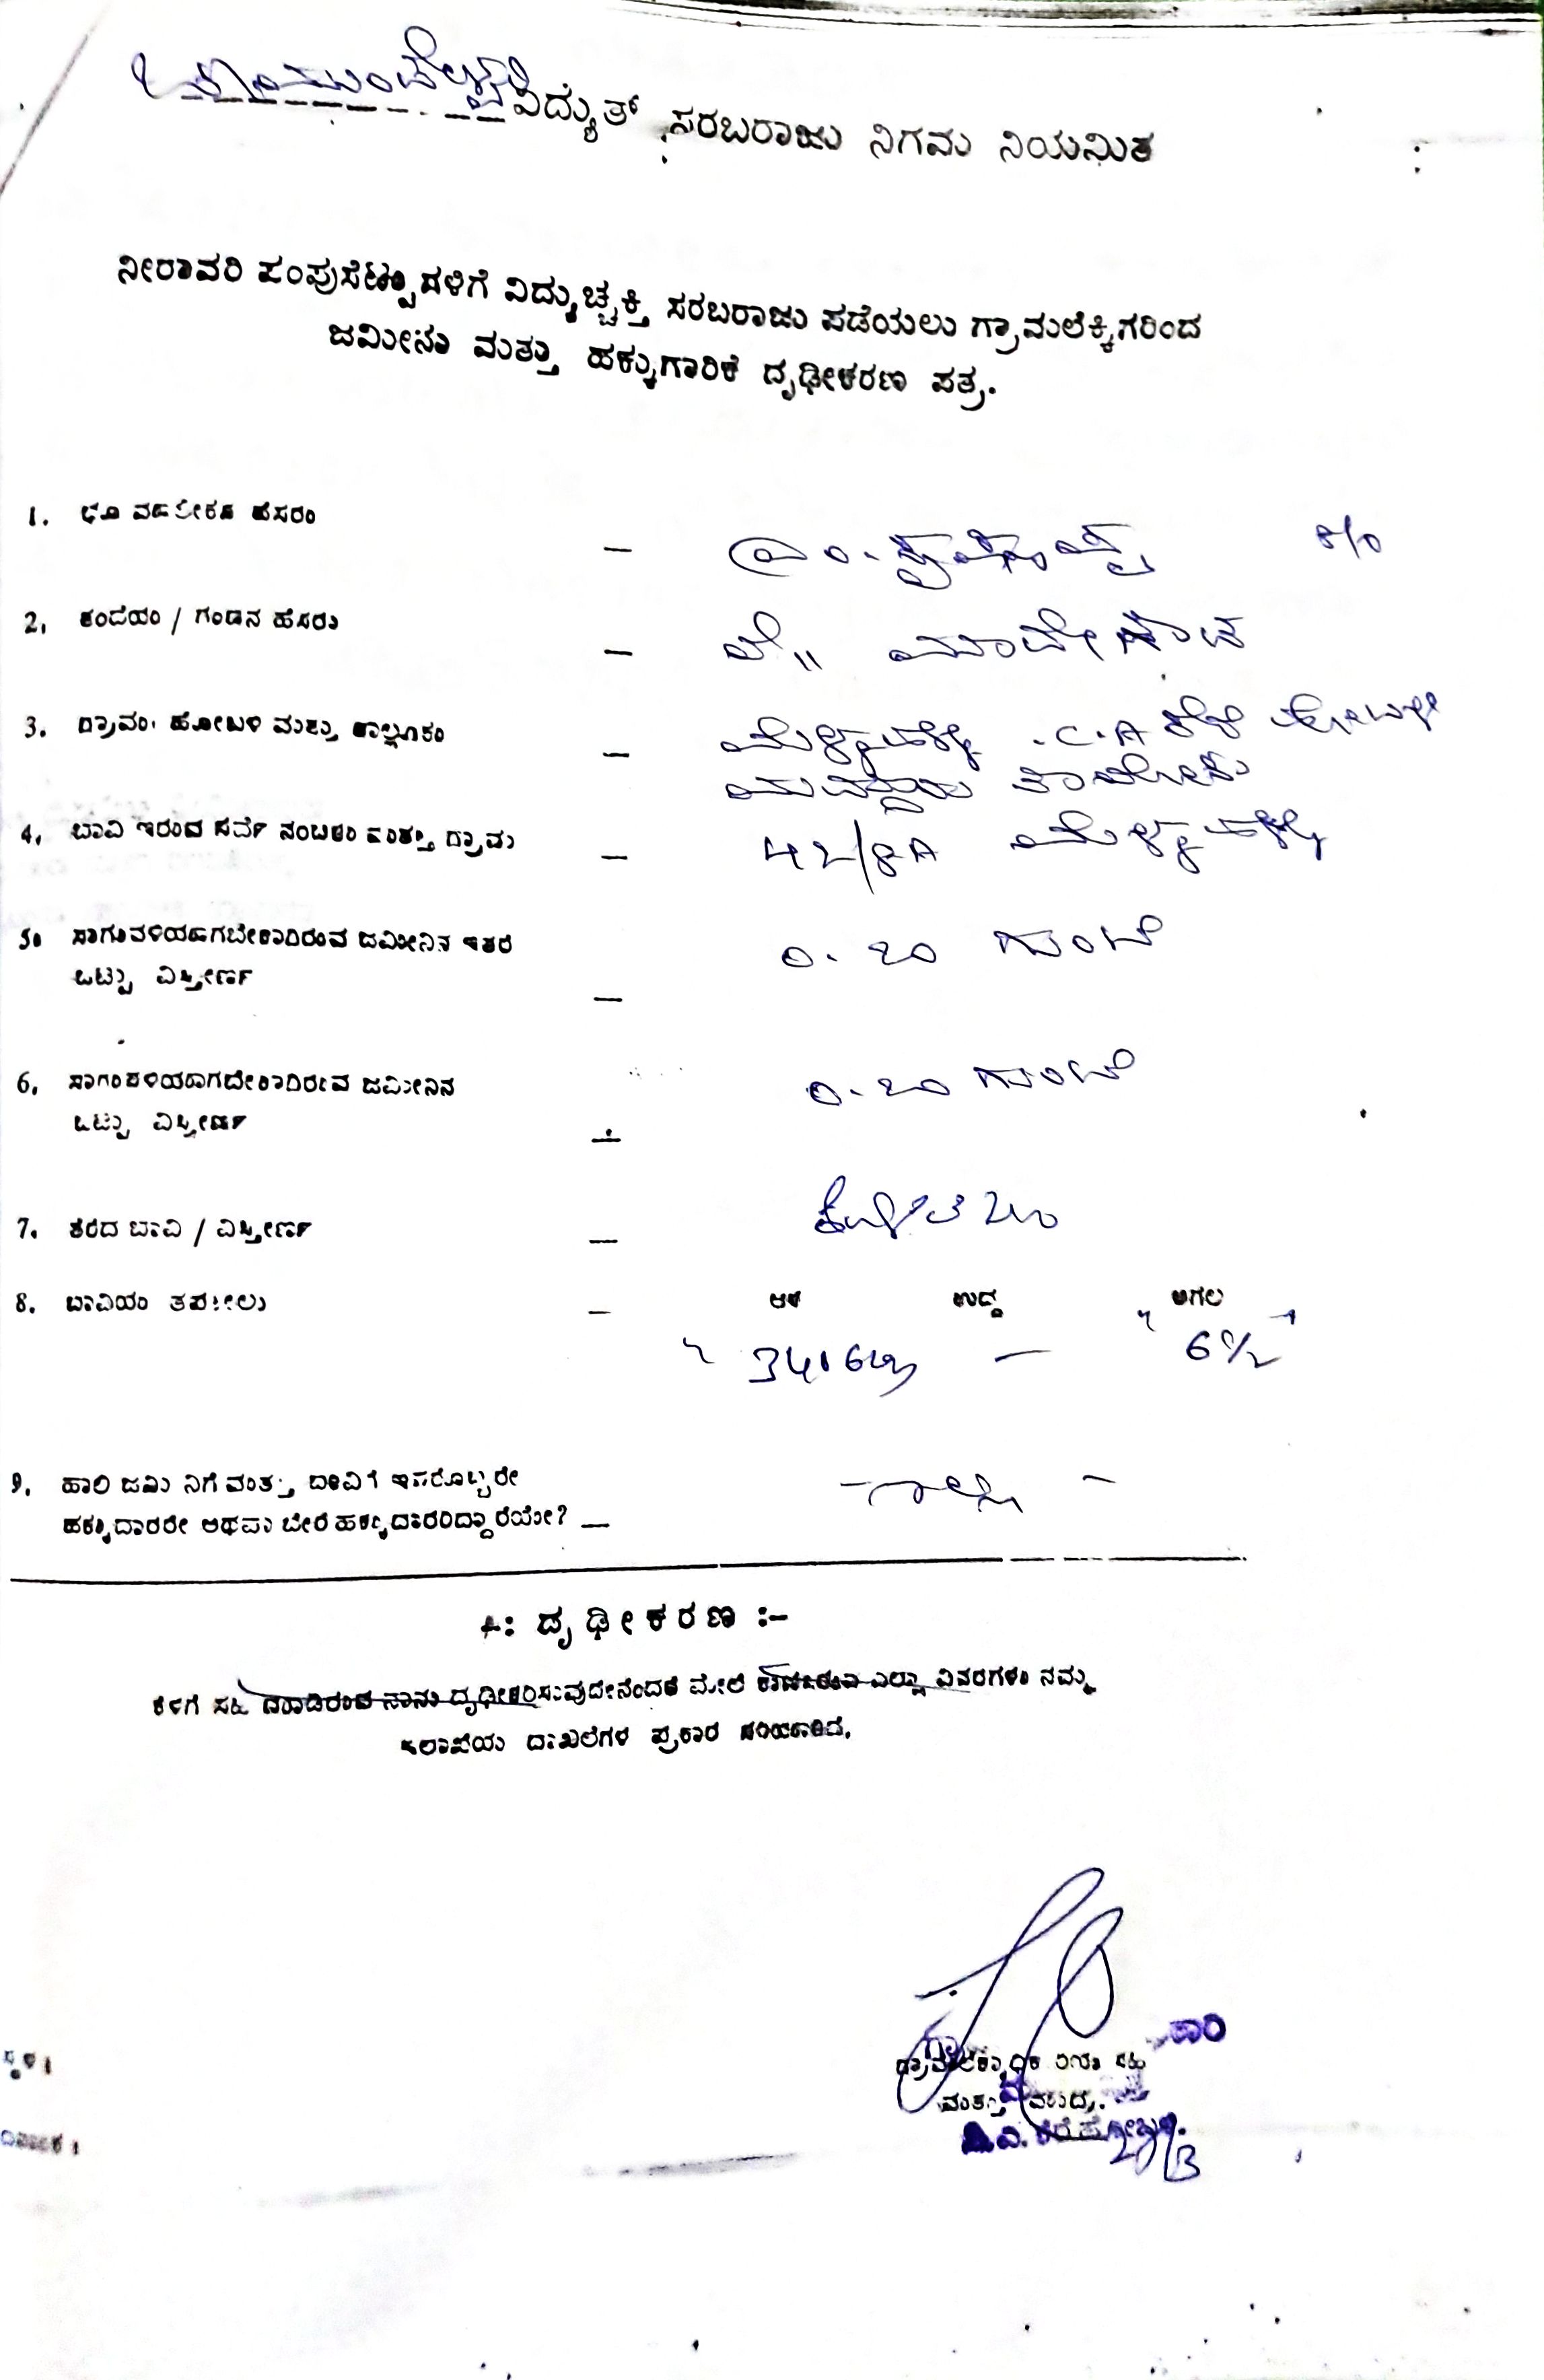 ಚಾಮುಂಡೇಶ್ವರಿ ವಿದ್ಯುತ್ ಸರಬರಾಜು ನಿಗಮ ನಿಯಮಿತ
ನೀರಾವರಿ ಪಂಪುಸೆಟ್ಟುಗಳಿಗೆ ವಿದ್ಯುಚ್ಛಕ್ತಿ ಸರಬರಾಜು ಪಡೆಯಲು ಗ್ರಾಮಲೆಕ್ಕಿಗರಿಂದ
ಜಮೀನು ಮತ್ತು ಹಕ್ಕುಗಾರಿಕೆ ದೃಢೀಕರಣ ಪತ್ರ.
1. ಭೂ ಹೆಸರು — S/o
2. ತಂದೆಯ / ಗಂಡನ ಹೆಸರು — ಲೇ|| ಮಾದೇಗೌಡ
3. ಗ್ರಾಮ, ಹೋಬಳಿ ಮತ್ತು ತಾಲ್ಲೂಕು — ಮೆಳ್ಳಹಳ್ಳಿ C.A ಕೆರೆ ಹೋಬಳಿ
ಮದ್ದೂರು ತಾಲೋಕು
4. ಬಾವಿ ಇರುವ ಸರ್ವೆ ನಂಬರು ಮತ್ತು ಗ್ರಾಮ — 42/8A ಮೆಳ್ಳಹಳ್ಳಿ
5. ಸಾಗುವಳಿಯಾಗಬೇಕಾಗಿರುವ ಜಮೀನಿನ ಇತರೆ 0-20 ಗುಂಟೆ
ಒಟ್ಟು ವಿಸ್ತೀರ್ಣ —
6. ಸಾಗುವಳಿಯಾಗಬೇಕಾಗಿರುವ ಜಮೀನಿನ 0-20 ಗುಂಟೆ
ಒಟ್ಟು ವಿಸ್ತೀರ್ಣ —
7. ತೆರೆದ ಬಾವಿ / ವಿಸ್ತೀರ್ಣ —
8. ಬಾವಿಯ ತಪಶೀಲು — ಆಳ ಉದ್ದ ಅಗಲ
— 6½
9. ಹಾಲಿ ಜಮೀನಿಗೆ ಮತ್ತು ಬಾವಿಗೆ ಇವರೊಬ್ಬರೇ
ಹಕ್ಕುದಾರರೇ ಅಥವಾ ಬೇರೆ ಹಕ್ಕುದಾರರಿದ್ದಾರೆಯೇ? —
-: ದೃಢೀಕರಣ :-
ಕೆಳಗೆ ಸಹಿ ಮಾಡಿರುವ ನಾನು ದೃಢೀಕರಿಸುವುದೇನೆಂದರೆ ಮೇಲೆ ಕಾಣಿಸಿರುವ ಎಲ್ಲಾ ವಿವರಗಳು ನಮ್ಮ
ಇಲಾಖೆಯ ದಾಖಲೆಗಳ ಪ್ರಕಾರ ಸರಿಯಾಗಿದೆ.
ಸ್ಥಳ :
ಗ್ರಾಮಲೆಕ್ಕಾಧಿಕಾರಿಯ ಸಹಿ
ಮತ್ತು ಮುದ್ರೆ.
ದಿನಾಂಕ :
ಸಿ.ಎ. ಕೆರೆ ಹೋಬಳಿ.